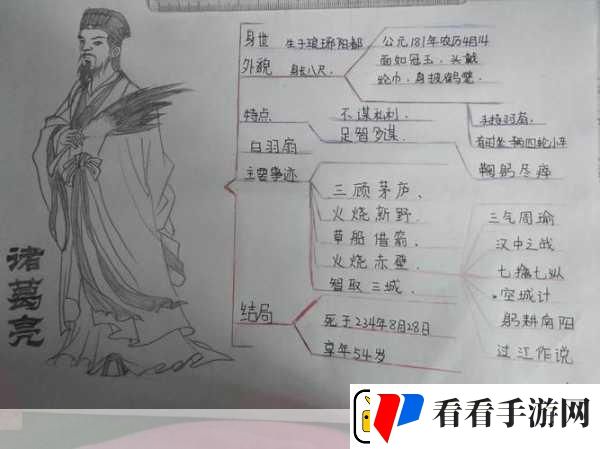 诸葛亮
身世 生于琅琊阳都 公元181年农历4月14
外貌 身长八尺. 面如冠玉、头戴
纶巾、身披鹤氅.
特点 不谋私利. 手持羽扇.
足智多谋 有时坐一辆四轮小车
白羽扇 鞠躬尽瘁
主要事迹
三顾茅庐.
火烧新野 三气周瑜
草船借箭. 汉中之战
火烧赤壁 七擒七纵
智取三城. 空城计
躬耕南阳
过江作说
结局 死于234年8月28日
享年54岁
看看手游网